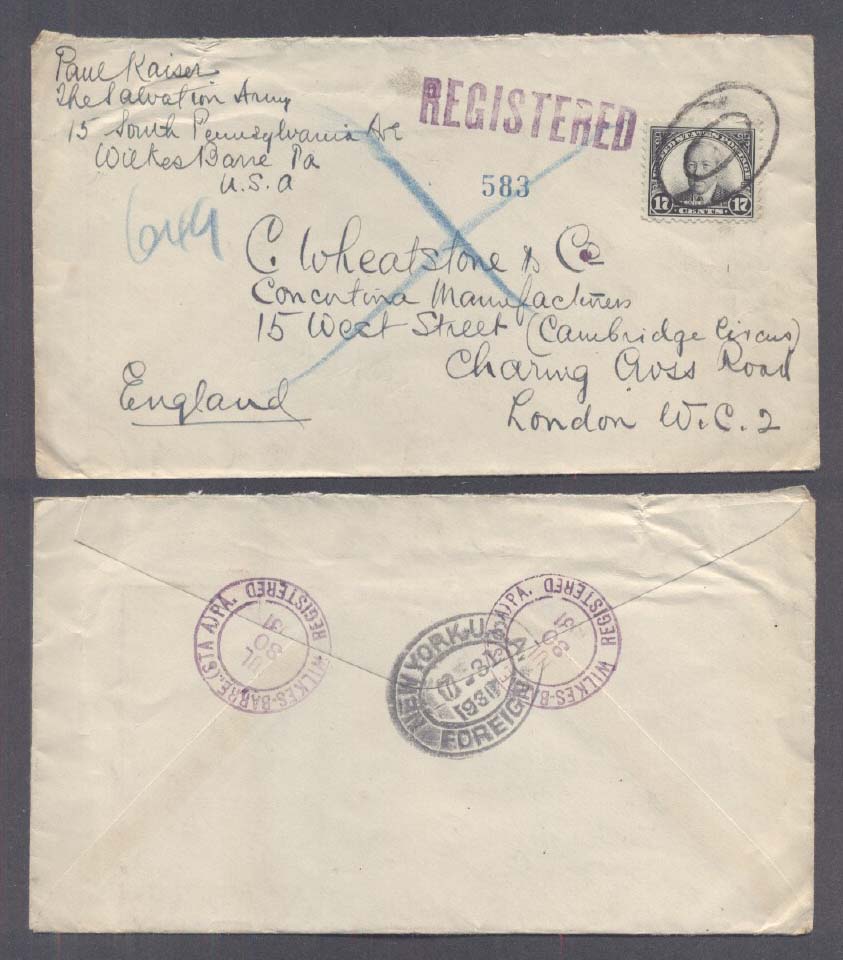 Paul Kaiser
The Salvation Army
15 South Pennsylvania Ave
Wilkes Barre Pa
U.S.A
REGISTERED
583
UNITED STATES POSTAGE
17 CENTS 17
649
C. Wheatstone & Co
Concertina Manufacturers
15 West Street (Cambridge Circus)
Charing Cross Road
London W.C. 2
England
WILKES-BARRE, (STA A) PA.
REGISTERED
JUL
30
31
NEW YORK, U.S.A.
7-31
1931
FOREIGN
WILKES-BA PA.
REGISTERED
30
31